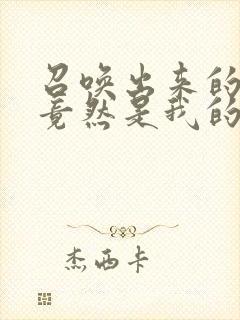 召唤出来的
竟然是我的
杰西卡